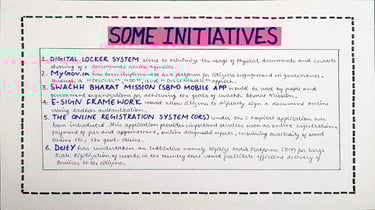 SOME INITIATIVES
1. DIGITAL LOCKER SYSTEM aims to minimize the usage of physical documents and enable
sharing of e documents across agencies.
2. MyGov.in has been implemented as a platform for citizens engagement in governance,
through a "DISCUSS", "DO", and "DISSEMINATE" approach.
3. SWACHH BHARAT MISSION (SBM) MOBILE APP would be used by people and
government organisations for achieving the goals of Swachh Bharat Mission.
4. E-SIGN FRAMEWORK would allow citizens to digitally sign a document online
using Aadhar authentication.
5. THE ONLINE REGISTRATION SYSTEM (ORS) under the E hospital application has
been introduced. This application provides important services such as online registration,
payment of fees and appointment, online diagnostic reports, inquiring availability of blood
online etc, the govt.
6. DeitY has undertaken an initiative namely Digitize India Platform (DIP) for large
scale digitization of records in the country that would facilitate efficient delivery of
services to the citizens.